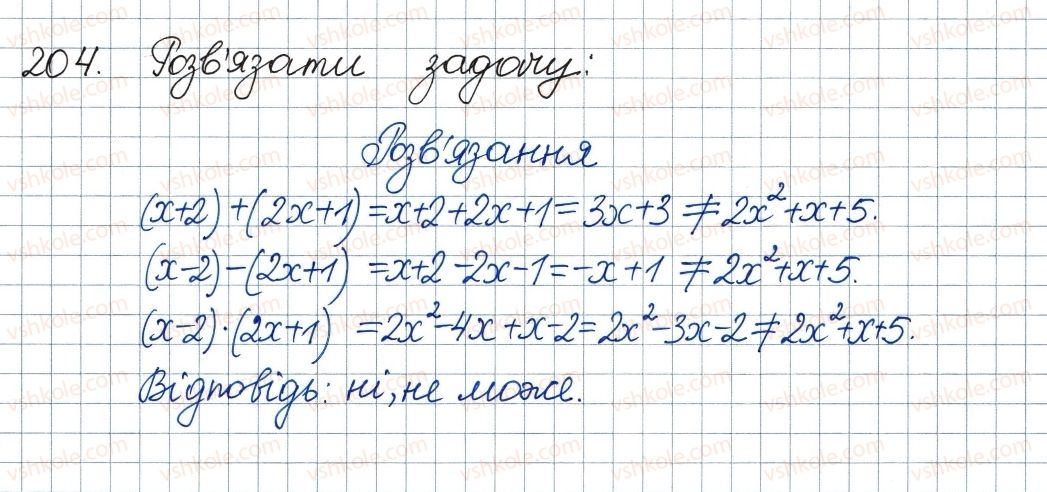 204. Розв'язати задачу:
Розв'язання
(x+2)+(2x+1)=x+2+2x+1=3x+3≠2x²+x+5.
(x-2)-(2x+1)=x+2-2x-1=-x+1≠2x²+x+5.
(x-2)·(2x+1)=2x²-4x+x-2=2x²-3x-2≠2x²+x+5.
Відповідь: ні, не може.